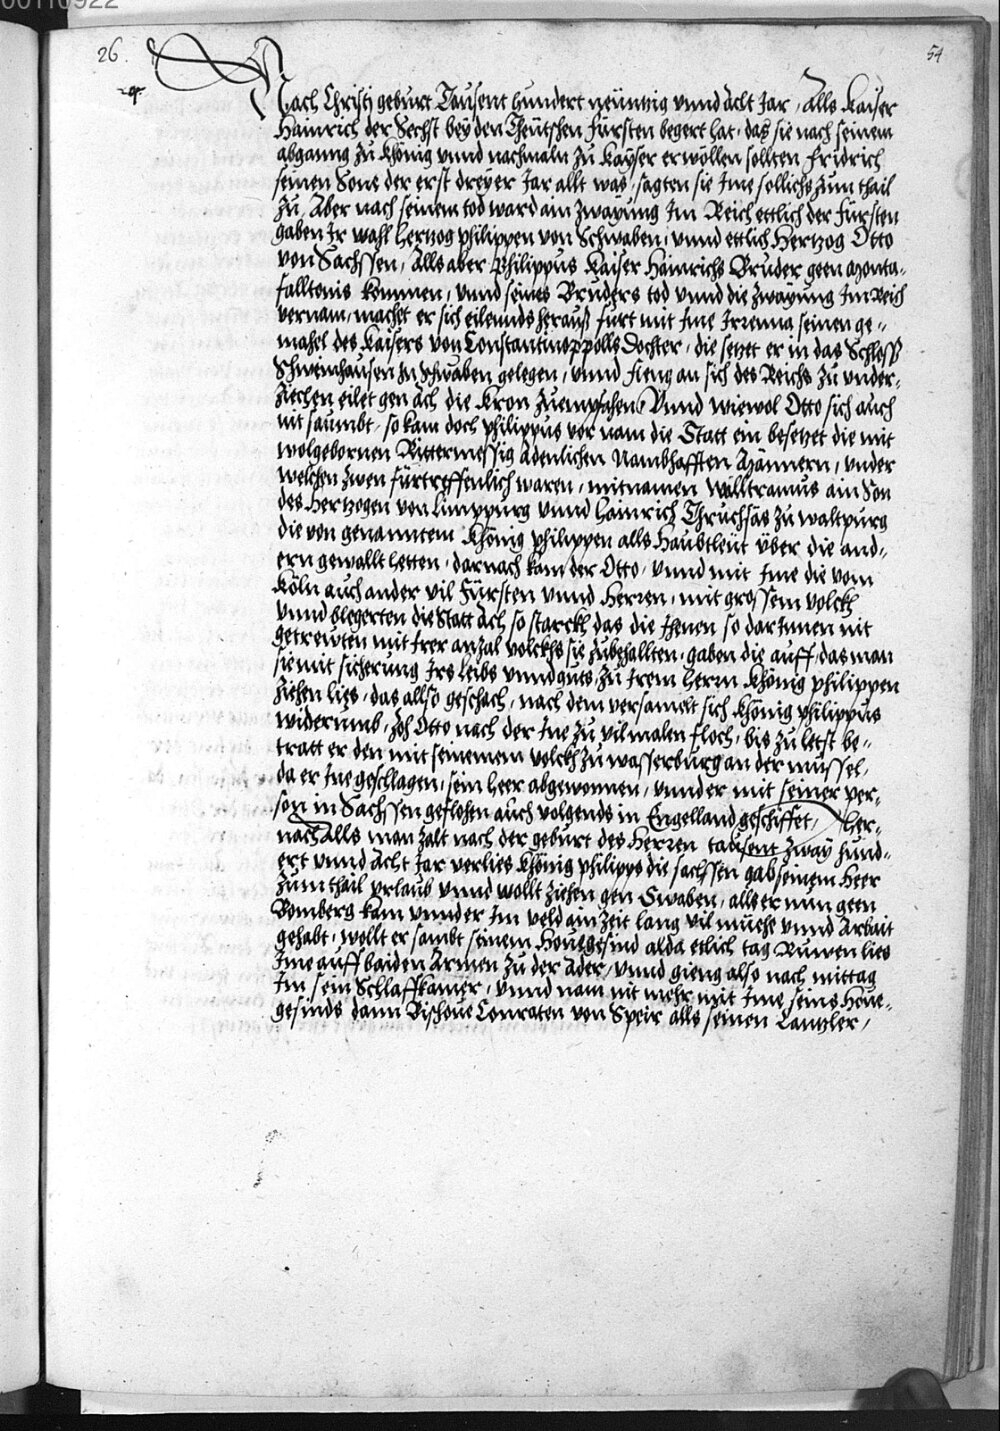 00110922
26.
54
Nach Christj geburt Tausent hundert neüntzig vnnd Acht Jar / Alls Kaiser
Hainrich der Sechst bey den Theütschen fürsten begert hat, das sie nach seinem
abganng zu Khönig vnnd nachmaln zu Kayser erwöllen sollten Fridrich
seinen Sone der erst dreyer Jar allt was, sagten sie Jme sollichs zum thail
zu, Aber nach seinem tod ward ain zwayung Jm Reich ettlich der fürsten
gaben Jr wahl hertzog philippen von Schwaben, vnnd ettlich Hertzog Otto
von Sachssen, Alls aber Philippus Kaiser Hainrichs Bruder geen Monta-
falltonis kommen, vnnd seines Bruders tod vnnd die zwayung Jm Reich
vernam, machet er sich eilennds herauß furt mit Jme Jrrenna seinen ge-
mahel des Kaisers von Constantinoppolls Dochter, die setzet er in das Schloß
Schweinhausen Jn Schwaben gelegen, vnnd fieng an sich des Reichs zu vnder-
ziechen eilet gen Ach die Kron zuempfahen, Vnnd wiewol Otto sich auch
nit saumbt, so kam doch philippus vor nam die Statt ein besetzet die mit
wolgebornen Rittermessig Adenlichen Nambhafften Männern, vnder
welchen zwen fürtreffenlich waren, mitnamen Walltramus ain Son
des Hertzogen von Limppurg vnnd Hainrich Thruchsäs zu waltpurg
die von genanntem Khönig philippen alls Haubtleüt über die and-
ern gewallt hetten, darnach kam der Otto, vnnd mit Jme die vom
Köln auch ander vil Fürsten vnnd Herren, mit grossem volckh
vnnd blegerten die Statt Ach so starckh das die Jhenen so dar Jnnen nit
getrewten mit Jrer anzal volckhs sie zubehallten, gaben die auff, das man
sie mit sicherung Jrs Leibs vnnd guts, zu Jrem herrn Khönig philippen
ziehen lies, das allso geschach, nach dem versamelt sich Khönig philippus
widerumb, zoh Otto nach der Jne zu vil malen floch, bis zu letst be-
tratt er den mit seinem volckh zu wasserburg an der müssel,
da er Jne geschlagen, sein heer abgewonnen, vnnd er mit seiner per-
son in Sachssen geflohen auch volgends in Engelland geschiffet, Her-
nach Alls man zalt nach der geburt des Herren tausent zway hund-
ert vnnd Acht Jar verlies Khönig philipps die sachssen gab seinem Heer
zum thail vrlaub vnnd wollt ziehen gen Swaben, alls er nun geen
Bomberg kam vnnd er Jm veld ain zeit lang vil müehe vnnd Arbait
gehabt, wollt er sambt seinem Houegesind alda etlich tag Ruwen lies
Jme auff baiden Armen zu der Ader, vnnd gieng also nach mittag
Jm sein Schlaffkamer, vnnd nam nit mehr mit Jme seins Houe-
gesinds dann Bischoue Conraten von Speir alls seinen Cantzler,